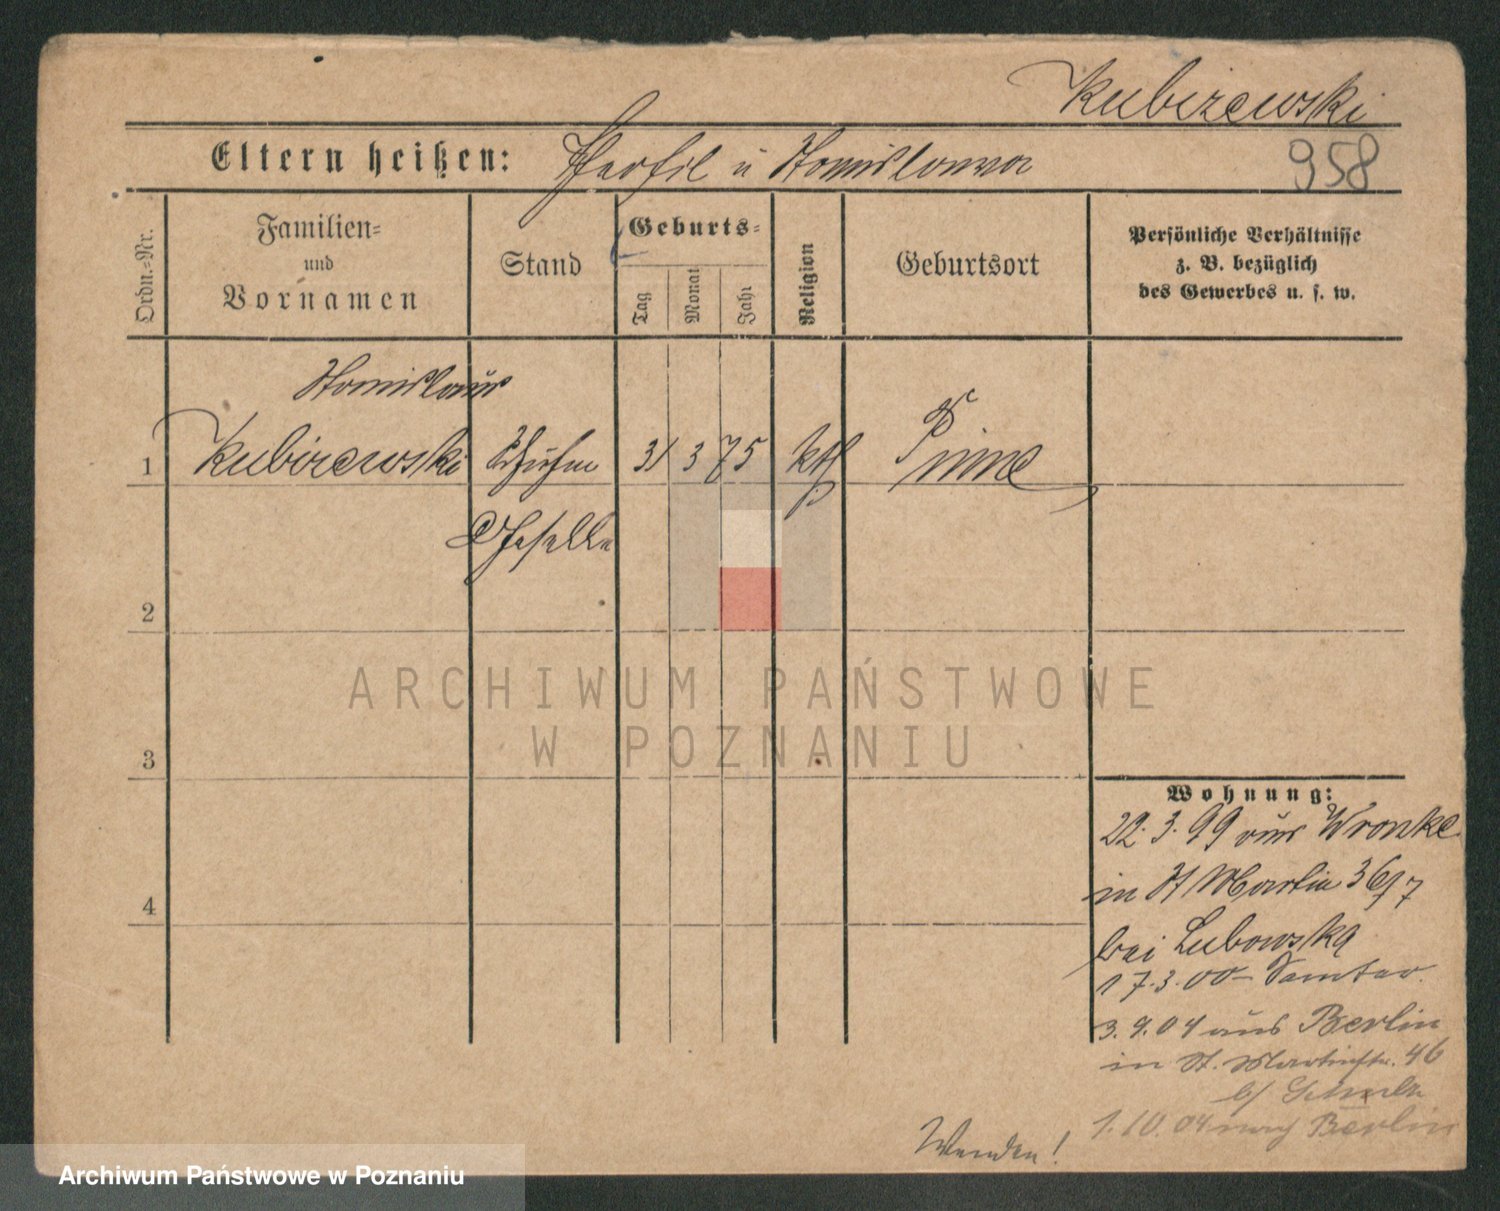 Kubizewski
Eltern heißen: Theofil u Stanislawa
958
Ordn.-Nr.
Familien-
und
Vornamen
Stand
Geburts-
Tag
Monat
Jahr
Religion
Geburtsort
Persönliche Verhältnisse
z. B. bezüglich
des Gewerbes u. s. w.
Stanislaus
1 Kubizewski Schuhm 31 3 75 kth Pinne
Geselle
2
3
4
ARCHIWUM PAŃSTWOWE
W POZNANIU
Wohnung:
22.3.99 aus Wronke
in St Martin
bei Lubowska
17.3.00 - Samter.
3.9.04 aus Berlin
in St. Martinstr. 46
b/
1.10.04 nach Berlin
Wenden!
Archiwum Państwowe w Poznaniu